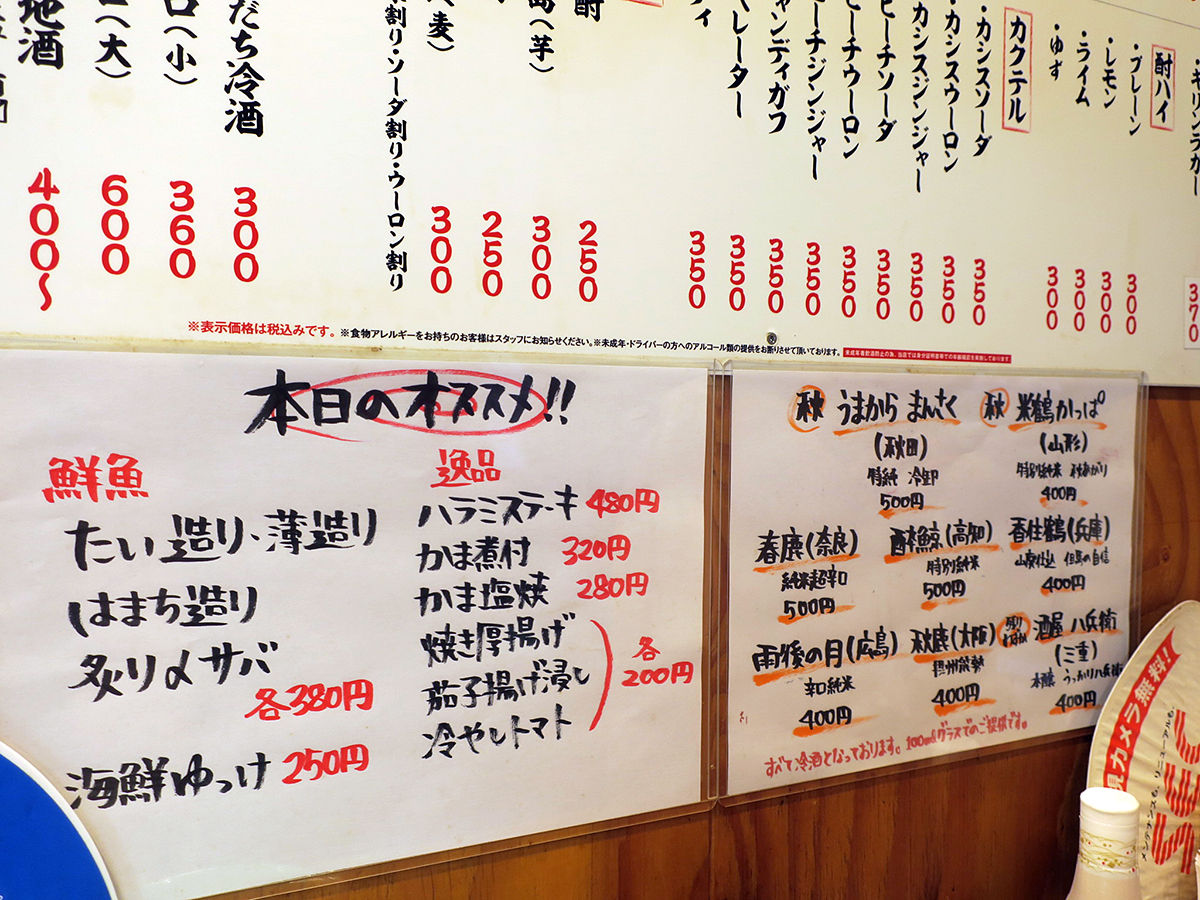 ・キリンラガー
370
酎ハイ
・プレーン
300
・レモン
300
・ライム
300
・ゆず
300
カクテル
・カシスソーダ
350
・カシスウーロン
350
カシスジンジャー
350
ピーチソーダ
350
ピーチウーロン
350
ピーチジンジャー
350
ャンディガフ
350
ペレーター
350
ィ
350
酎
250
島(芋)
300
250
(麦)
300
割り・ソーダ割り・ウーロン割り
だち冷酒
300
口(小)
360
(大)
600
地酒
400〜
※表示価格は税込みです。
※食物アレルギーをお持ちのお客様はスタッフにお知らせください。※未成年・ドライバーの方へのアルコール類の提供をお断りさせて頂いております。
本日のオススメ!!
鮮魚
たい造り・薄造り
はまち造り
炙り〆サバ
各380円
海鮮ゆっけ 250円
逸品
ハラミステーキ 480円
かま煮付 320円
かま塩焼 280円
焼き厚揚げ
茄子揚げ浸し
冷やしトマト
各
200円
秋 うまから まんさく
(秋田)
特純 冷卸
500円
秋 米鶴かっぱ
(山形)
特別純米 秋あがり
400円
春鹿(奈良)
純米超辛口
500円
酔鯨(高知)
特別純米
500円
香住鶴(兵庫)
山廃仕込 但馬の自信
400円
雨後の月(広島)
辛口純米
400円
秋鹿(大阪)
摂州能勢
400円
酒屋 八兵衛
(三重)
本醸 うっかり八兵衛
400円
すべて冷酒となっております。100mlグラスでのご提供です。
カメラ無料!!
メンテナンスも、リニューアルも、